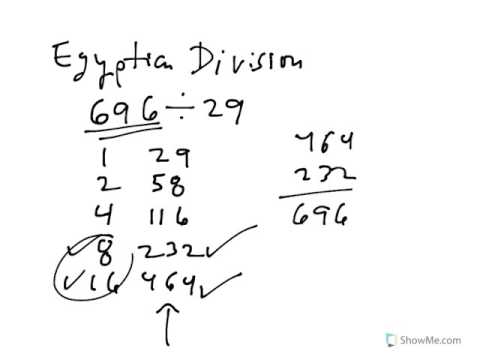 Egyptian Division
696 ÷ 29
1 29
2 58
4 116
✓8 232✓
✓16 464✓
464
232
696
ShowMe.com